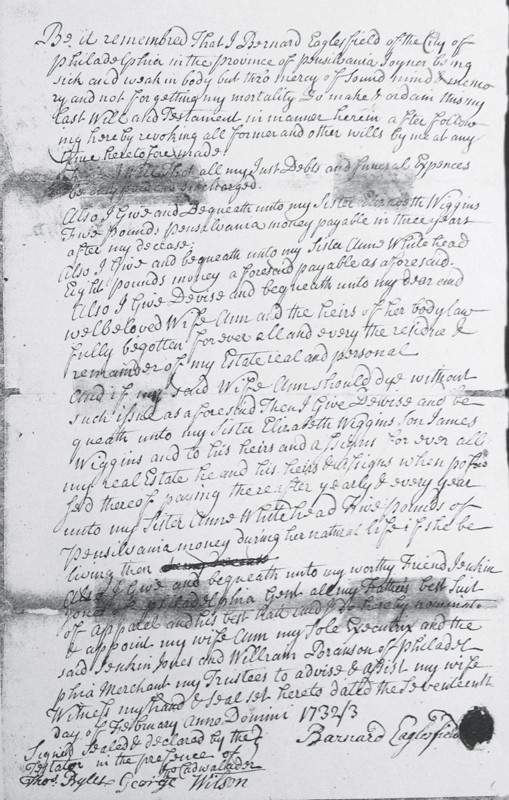 Be it remembered That I Bernard Eaglesfield of the City of
Philadelphia in the Province of Pensilvania Joyner being
sick and weak in body but thro mercy of sound mind & memo
ry and not forgetting my mortality Do make & ordain this my
Last Will and Testament in manner herein after follow
ing hereby revoking all former and other wills by me at any
time heretofore made.
I Will that all my Just Debts and funeral Expences
be discharged.
Also I Give and Bequeath unto my Sister Elizabeth Wiggins
Five Pounds Pensilvania money payable in three years
after my decease;
Also I Give and bequeath unto my Sister Anne Whitehead
Eight pounds money aforesaid payable as aforesaid.
Also I Give Devise and bequeath unto my dear and
welbeloved Wife Ann and the heirs of her body law
fully begotten for ever all and every the residue &
remainder of my Estate real and personal
And if my said Wife Ann should dye without
such issue as aforesaid Then I Give Devise and be
queath unto my Sister Elizabeth Wiggins Son James
Wiggins and to his heirs and assigns for ever all
my real Estate he and his heirs & assigns when posses
sed thereof paying thereafter yearly & every year
unto my Sister Anne Whitehead Five pounds of
Pensilvania money during her natural life if she be
living then
Also I Give and bequeath unto my worthy Friend Jenkin
Jones of Philadelphia Gent all my Fathers best Suit
of apparel and his best hatt and I do hereby nominate
& appoint my wife Ann my Sole Executrix and the
said Jenkin Jones and William Branson of Philadel
phia Merchant my Trustees to advise & assist my wife
Witness my hand & seal set hereto dated the Seventeenth
day of February Anno Domini 1732/3
Barnard Eaglesfield
Signed sealed & declared by the
Testator in the presence of
Tho Cadwalader
Thos. Byles George Wilson